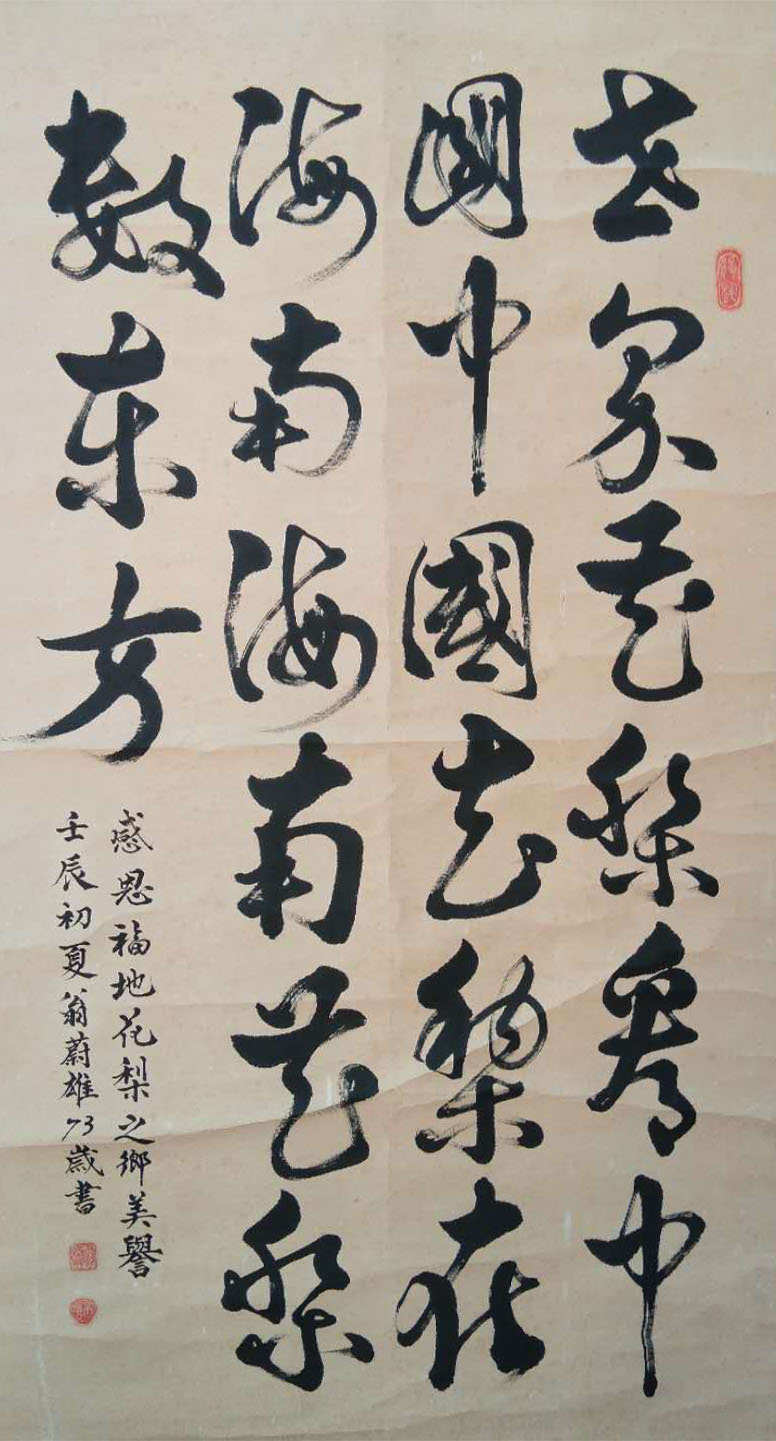 世界花梨中
國中國花梨在
海南海南花梨
數東方
感恩福地花梨之鄉美譽
壬辰初夏翁蔚雄73歲書